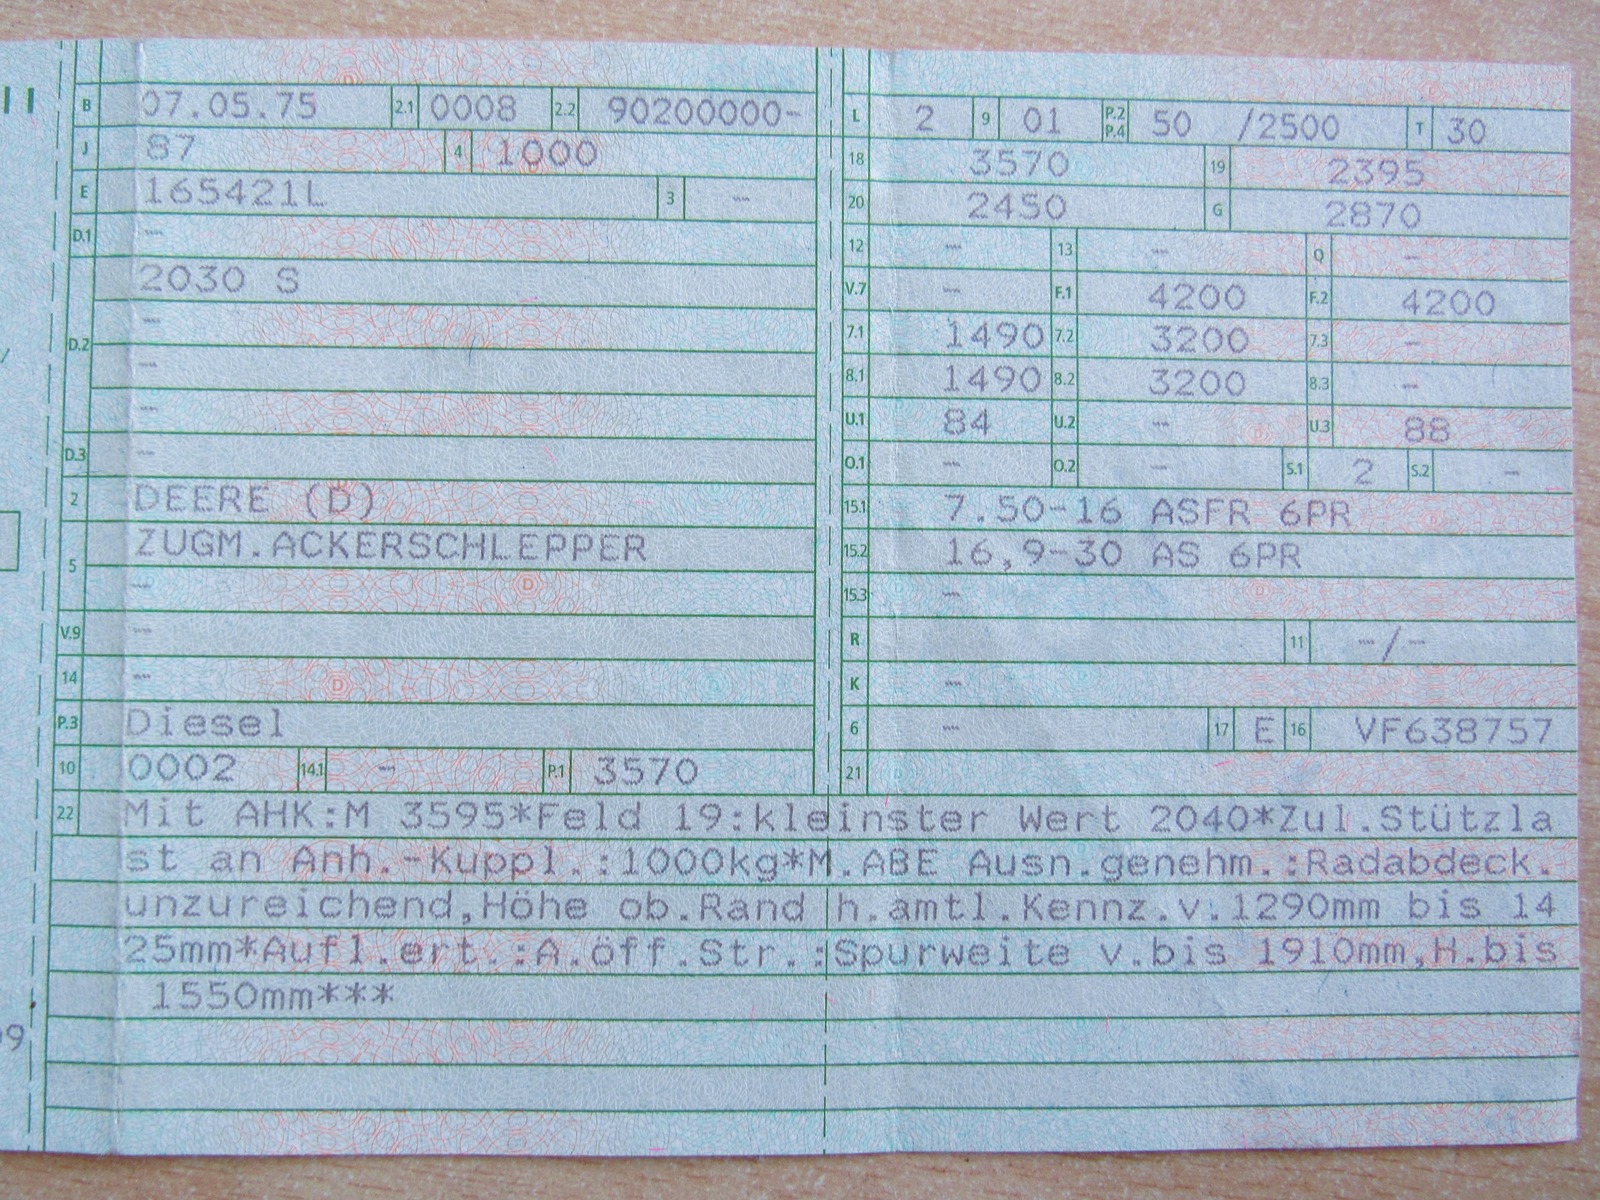 II
B 07.05.75 2.1 0008 2.2 90200000-
J 87 4 1000
E 165421L 3 -
D.1 -
2030 S
D.2 -
-
-
D.3 -
2 DEERE (D)
5 ZUGM.ACKERSCHLEPPER
-
V.9 -
14 -
P.3 Diesel
10 0002 14.1 - P.1 3570
L 2 9 01 P.2 P.4 50 /2500 T 30
18 3570 19 2395
20 2450 G 2870
12 - 13 - Q -
V.7 - F.1 4200 F.2 4200
7.1 1490 7.2 3200 7.3 -
8.1 1490 8.2 3200 8.3 -
U.1 84 U.2 - U.3 88
O.1 - O.2 - S.1 2 S.2 -
15.1 7.50-16 ASFR 6PR
15.2 16,9-30 AS 6PR
15.3 -
R 11 -/-
K -
6 - 17 E 16 VF638757
21
22 Mit AHK:M 3595*Feld 19:kleinster Wert 2040*Zul.Stützla
st an Anh.-Kuppl.:1000kg*M.ABE Ausn.genehm.:Radabdeck.
unzureichend,Höhe ob.Rand h.amtl.Kennz.v.1290mm bis 14
25mm*Aufl.ert.:A.öff.Str.:Spurweite v.bis 1910mm,H.bis
1550mm***